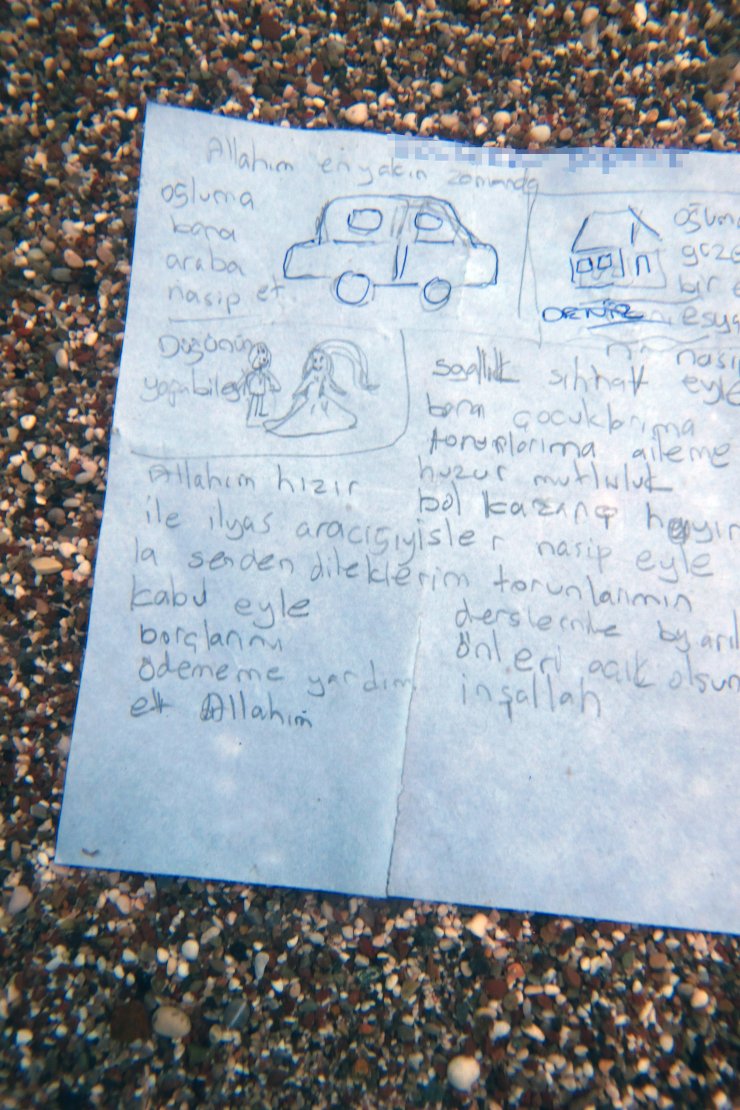 Allahım en yakın zamanda
oğluma
bana
araba
nasip et
oğlum
güze
bir e
DENİZ eşya
nasip
Düğünün
yapabile
sağlık sıhhat eyle
bana çocuklarıma
torunlarıma aileme
huzur mutluluk
bol kazanç hayır
işler nasip eyle
torunlarımın
önleri açık olsun
inşallah
Allahım hızır
ile ilyas aracığıyı
la senden dileklerim
kabul eyle
borçlarımı
ödememe yardım
et Allahım